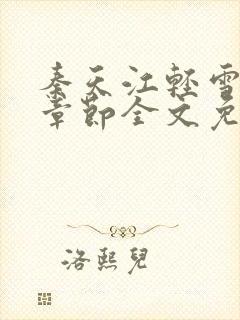 秦天江輕雪
章節全文免
洛熙兒